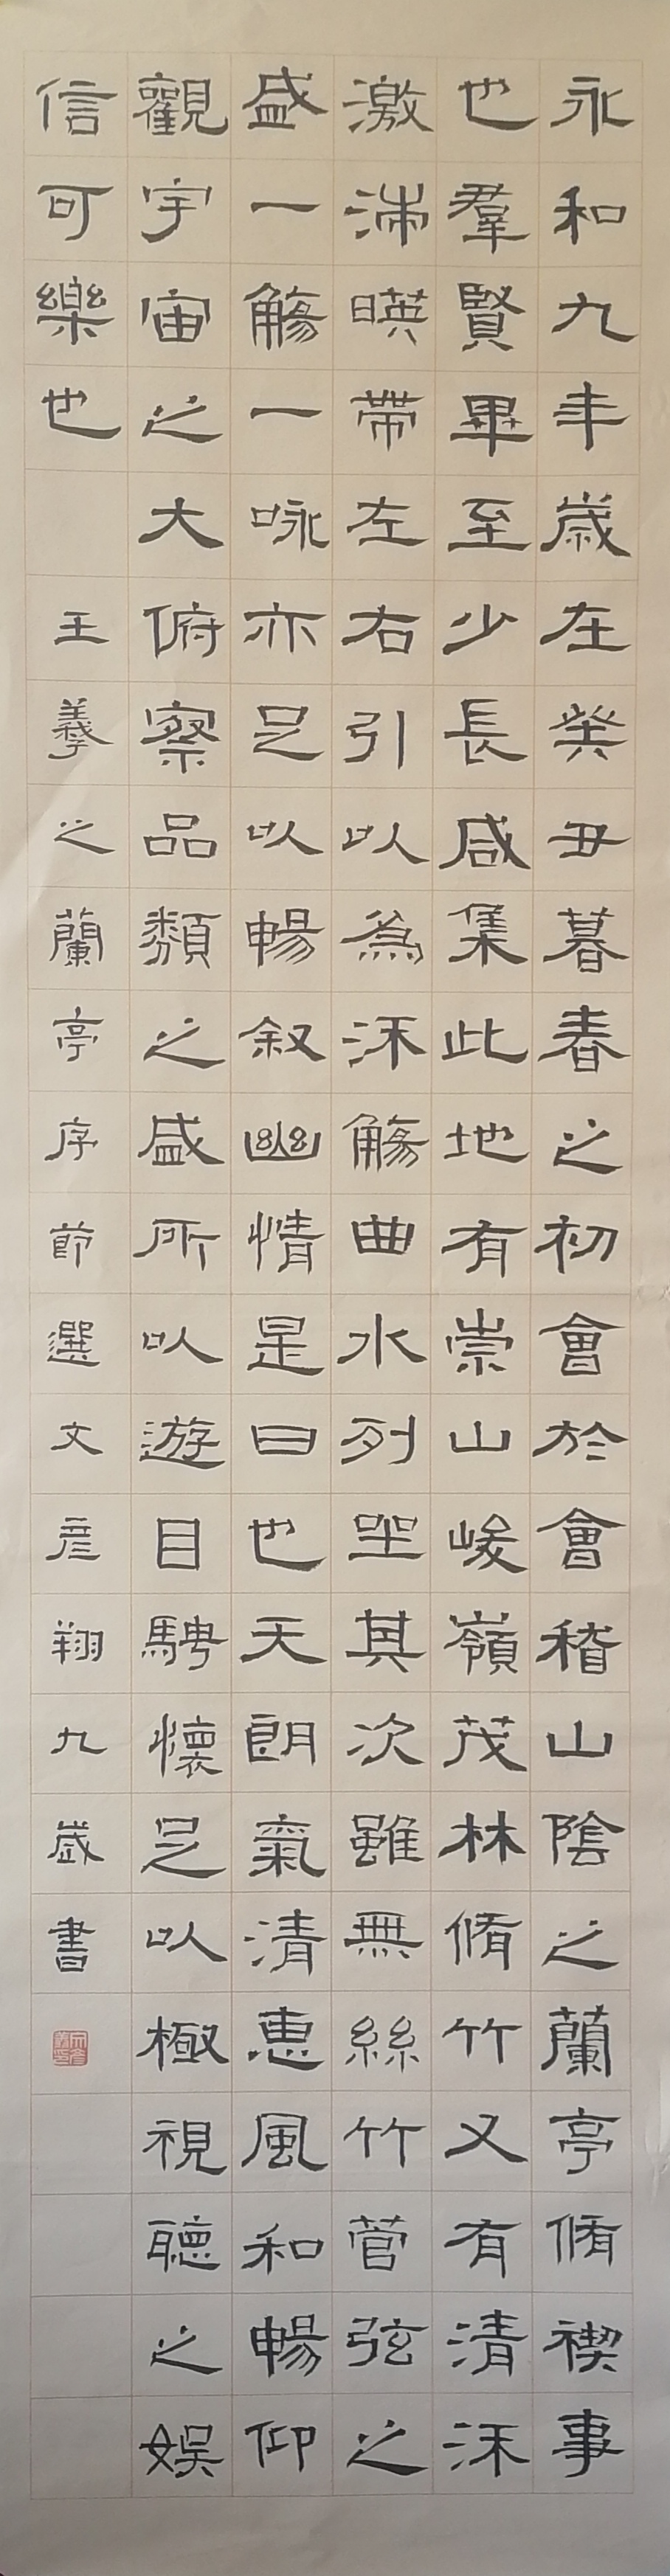 永和九年歲在癸丑暮春之初會於會稽山陰之蘭亭脩禊事
也羣賢畢至少長咸集此地有崇山峻嶺茂林脩竹又有清流
激湍暎帶左右引以為流觴曲水列坐其次雖無絲竹管弦之
盛一觴一咏亦足以暢叙幽情是日也天朗氣清惠風和暢仰
觀宇宙之大俯察品類之盛所以遊目騁懷足以極視聽之娛
信可樂也 王羲之蘭亭序節選文彥翔九歲書